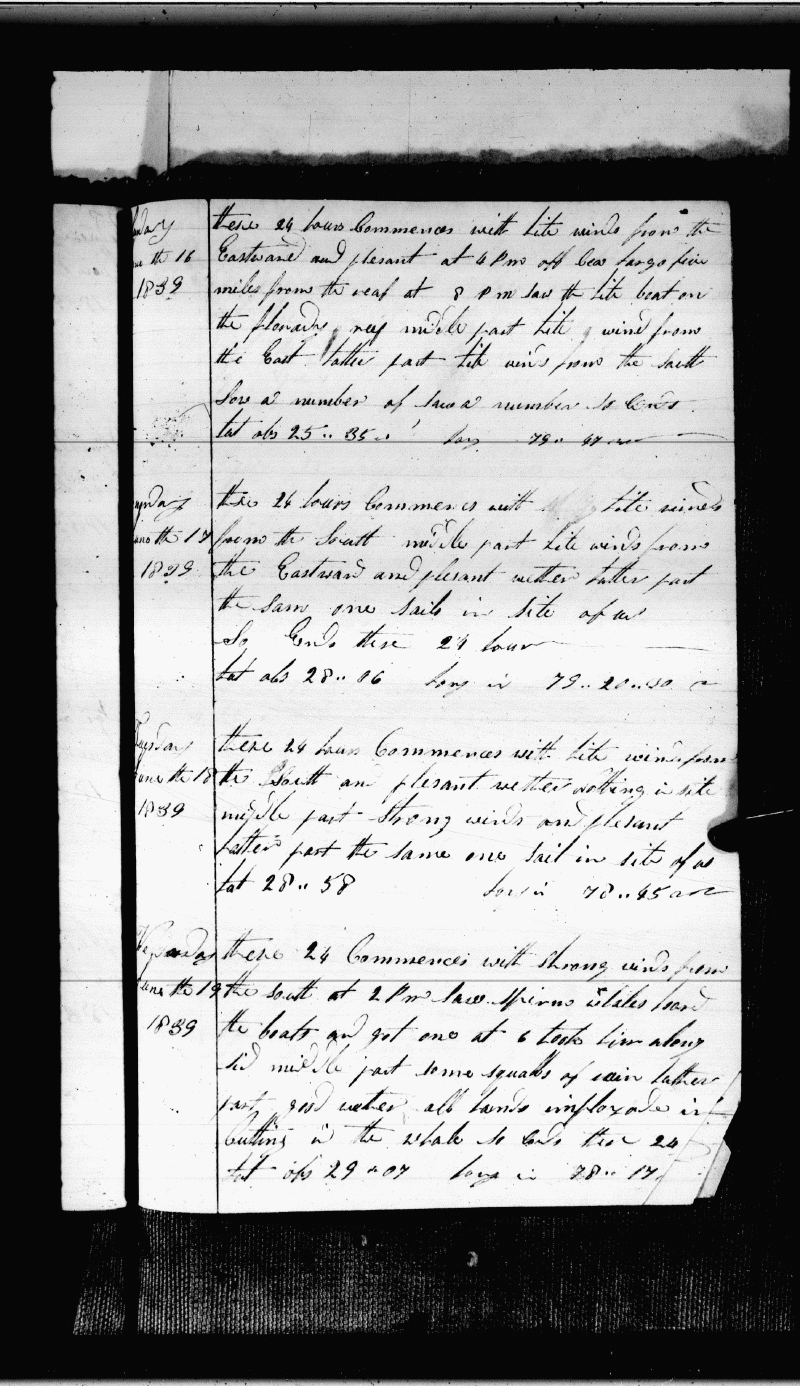 these 24 hours Commences with lite winds from the
June th 16 Eastward and plesant at 4 Pm off Cea largo five
1839 miles from the reaf at 8 Pm saw th lite boat on
the florads reef middle part lite winds from
the East latter part lite winds from the South
Saw a number of a number So Ends
lat obs 25 .. 35 long 79 ..
these 24 hours Commences with lite winds
June th 17 from the South middle part lite winds from
1839 the Eastward and plesant wether latter part
the sam one sails in site of us
So Ends these 24 hours
lat obs 28 .. 06 long in 79 .. 20 .. 30
Tuesday these 24 hours Commences with lite winds from
June th 18 the South and plesant wether nothing in site
1839 middle part strong winds and plesant
latter part the same one sail in site of us
lat 28 .. 58 long in 78 .. 45
these 24 Commences with strong winds from
June th 19 the South at 2 Pm saw whales
1839 the boats and got one at 6 took him along
sid middle part some squalls of rain latter
part good wether all hands imployde in
Cutting in the whale So Ends these 24
lat obs 29 .. 07 long in 78 .. 17